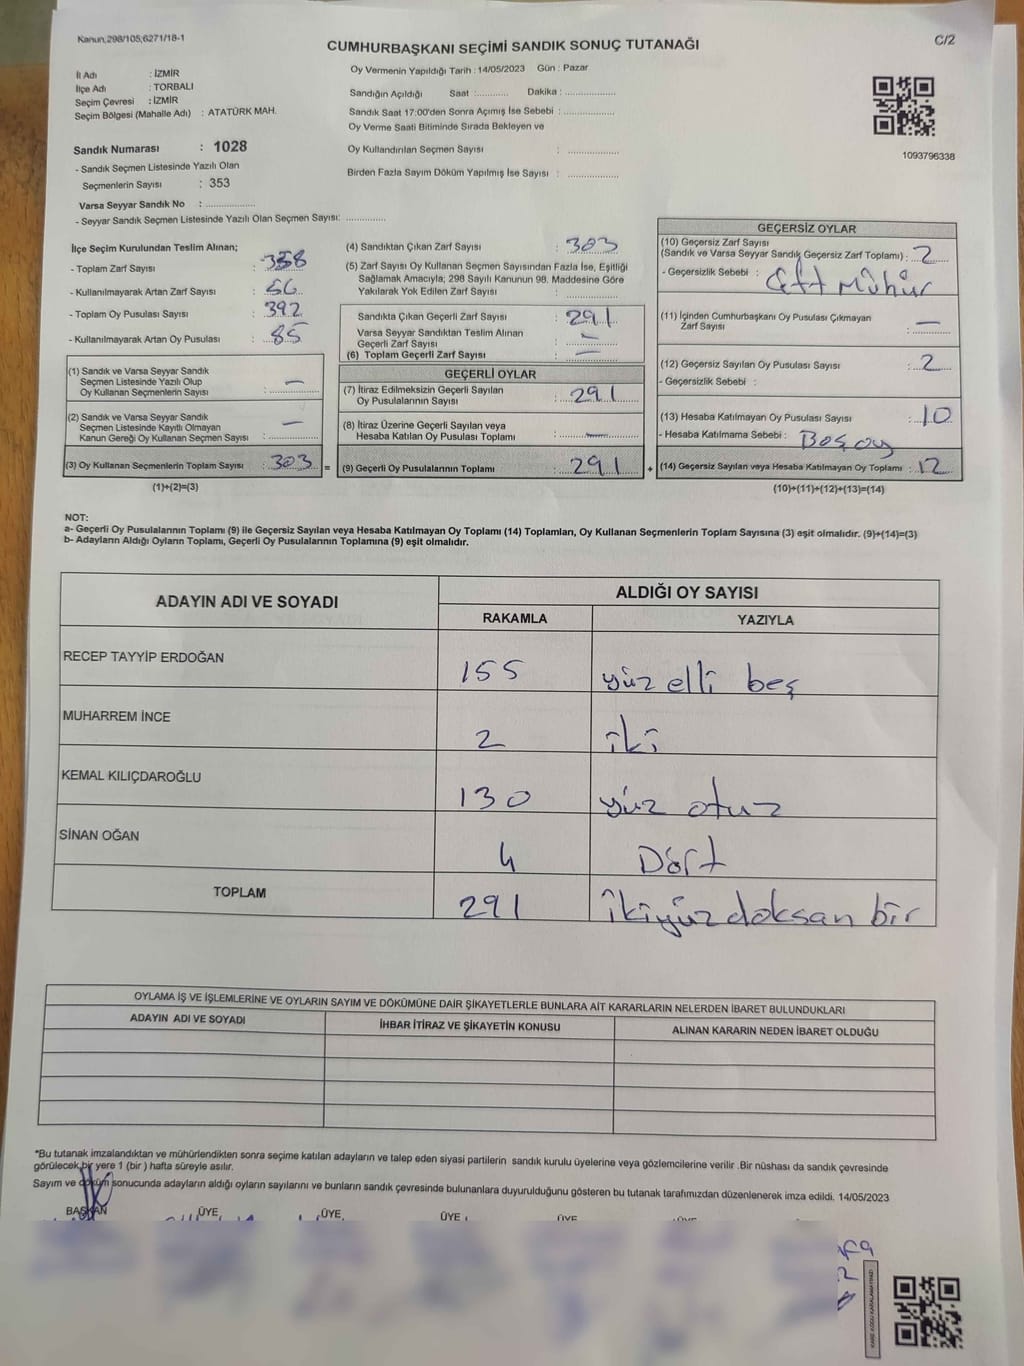 Kanun,298/105,6271/18-1
CUMHURBAŞKANI SEÇİMİ SANDIK SONUÇ TUTANAĞI
C/2
İl Adı : İZMİR
İlçe Adı : TORBALI
Seçim Çevresi : İZMİR
Seçim Bölgesi (Mahalle Adı) : ATATÜRK MAH.
Sandık Numarası : 1028
- Sandık Seçmen Listesinde Yazılı Olan
Seçmenlerin Sayısı : 353
Varsa Seyyar Sandık No : ..............
- Seyyar Sandık Seçmen Listesinde Yazılı Olan Seçmen Sayısı: ............
Oy Vermenin Yapıldığı Tarih : 14/05/2023 Gün : Pazar
Sandığın Açıldığı Saat :........... Dakika : ................
Sandık Saat 17:00'den Sonra Açımış İse Sebebi : ................
Oy Verme Saati Bitiminde Sırada Bekleyen ve
Oy Kullandırılan Seçmen Sayısı : ................
Birden Fazla Sayım Döküm Yapılmış İse Sayısı : ................
1093796338
İlçe Seçim Kurulundan Teslim Alınan;
- Toplam Zarf Sayısı : 358
- Kullanılmayarak Artan Zarf Sayısı :
- Toplam Oy Pusulası Sayısı : 392
- Kullanılmayarak Artan Oy Pusulası : 85
(1) Sandık ve Varsa Seyyar Sandık
Seçmen Listesinde Yazılı Olup
Oy Kullanan Seçmenlerin Sayısı : —
(2) Sandık ve Varsa Seyyar Sandık
Seçmen Listesinde Kayıtlı Olmayan
Kanun Gereği Oy Kullanan Seçmen Sayısı : —
(3) Oy Kullanan Seçmenlerin Toplam Sayısı : 303 =
(1)+(2)=(3)
(4) Sandıktan Çıkan Zarf Sayısı : 303
(5) Zarf Sayısı Oy Kullanan Seçmen Sayısından Fazla İse, Eşitliği
Sağlamak Amacıyla; 298 Sayılı Kanunun 98. Maddesine Göre
Yakılarak Yok Edilen Zarf Sayısı : ..............
Sandıkta Çıkan Geçerli Zarf Sayısı : 291
Varsa Seyyar Sandıktan Teslim Alınan
Geçerli Zarf Sayısı : —
(6) Toplam Geçerli Zarf Sayısı : —
GEÇERLİ OYLAR
(7) İtiraz Edilmeksizin Geçerli Sayılan
Oy Pusulalarının Sayısı : 291
(8) İtiraz Üzerine Geçerli Sayılan veya
Hesaba Katılan Oy Pusulası Toplamı : —
(9) Geçerli Oy Pusulalarının Toplamı : 291 +
GEÇERSİZ OYLAR
(10) Geçersiz Zarf Sayısı
(Sandık ve Varsa Seyyar Sandık Geçersiz Zarf Toplamı) : 2
- Geçersizlik Sebebi : Çift Mühür
(11) İçinden Cumhurbaşkanı Oy Pusulası Çıkmayan
Zarf Sayısı : —
(12) Geçersiz Sayılan Oy Pusulası Sayısı : 2
- Geçersizlik Sebebi :
(13) Hesaba Katılmayan Oy Pusulası Sayısı : 10
- Hesaba Katılmama Sebebi : Boş oy
(14) Geçersiz Sayılan veya Hesaba Katılmayan Oy Toplamı : 12
(10)+(11)+(12)+(13)=(14)
NOT:
a- Geçerli Oy Pusulalarının Toplamı (9) ile Geçersiz Sayılan veya Hesaba Katılmayan Oy Toplamı (14) Toplamları, Oy Kullanan Seçmenlerin Toplam Sayısına (3) eşit olmalıdır. (9)+(14)=(3)
b- Adayların Aldığı Oyların Toplamı, Geçerli Oy Pusulalarının Toplamına (9) eşit olmalıdır.
ADAYIN ADI VE SOYADI
ALDIĞI OY SAYISI
RAKAMLA YAZIYLA
RECEP TAYYİP ERDOĞAN 155 yüz elli beş
MUHARREM İNCE 2 iki
KEMAL KILIÇDAROĞLU 130 yüz otuz
SİNAN OĞAN 4 Dört
TOPLAM 291 ikiyüz doksan bir
OYLAMA İŞ VE İŞLEMLERİNE VE OYLARIN SAYIM VE DÖKÜMÜNE DAİR ŞİKAYETLERLE BUNLARA AİT KARARLARIN NELERDEN İBARET BULUNDUKLARI
ADAYIN ADI VE SOYADI İHBAR İTİRAZ VE ŞİKAYETİN KONUSU ALINAN KARARIN NEDEN İBARET OLDUĞU
*Bu tutanak imzalandıktan ve mühürlendikten sonra seçime katılan adayların ve talep eden siyasi partilerin sandık kurulu üyelerine veya gözlemcilerine verilir .Bir nüshası da sandık çevresinde
görülecek bir yere 1 (bir ) hafta süreyle asılır.
Sayım ve döküm sonucunda adayların aldığı oyların sayılarını ve bunların sandık çevresinde bulunanlara duyurulduğunu gösteren bu tutanak tarafımızdan düzenlenerek imza edildi. 14/05/2023
BAŞKAN ÜYE ÜYE ÜYE ÜYE ÜYE